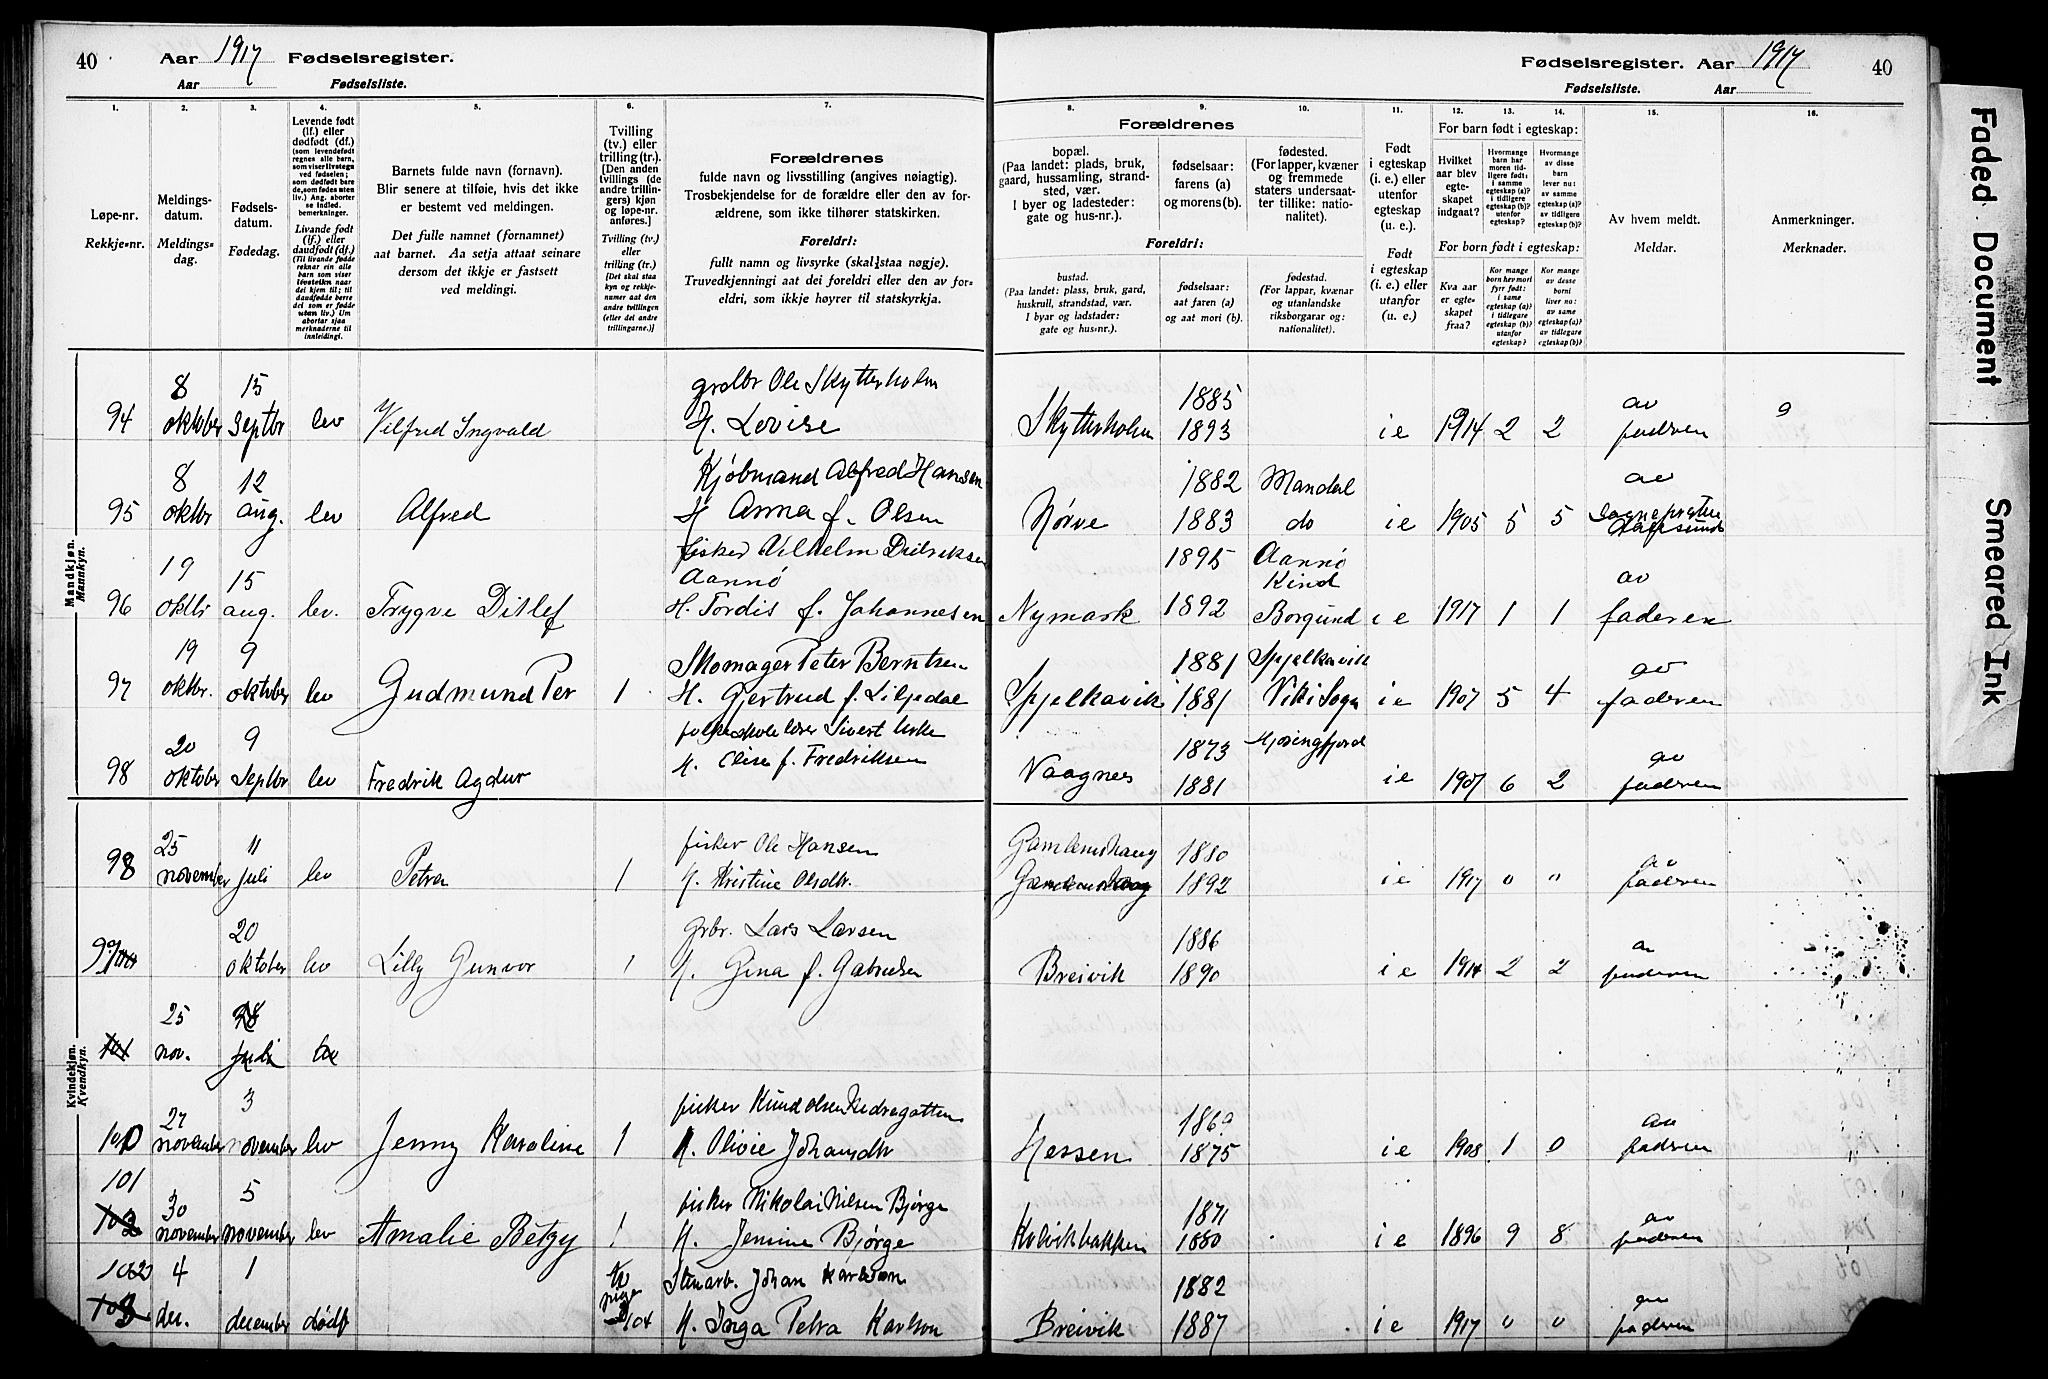 40 Aar 1917 Fødselsregister.
Aar Fødselsliste.
Fødselsregister. Aar 1917 40
Fødselsliste. Aar
1. 2. 3. 4. 5. 6. 7.
Løpe-nr.
Rekkje=nr.
Meldings-
datum.
Meldings=
dag.
Fødsels-
datum.
Fødedag.
Levende født
(lf.) eller
dødfødt (df.)
(som levendefødt
regnes alle barn,
som viser livstegn
ved fødselen;
som dødfødt bare
de, som fødes uten
liv.) Ang. aborter
se indled.
bemerkninger.
Livande født
(lf.) eller
daudfødt (df.)
(Til livande fødde
reknar ein alle
barn som viser
livsteikn naar
dei kjem til; til
daudfødde berre
dei som er fødde
utan liv.) Um
abortar sjaa
merknaderne til
innleidingi.
Barnets fulde navn (fornavn).
Blir senere at tilføie, hvis det ikke
er bestemt ved meldingen.
Det fulle namnet (fornamnet)
aat barnet. Aa setja attaat seinare
dersom det ikkje er fastsett
ved meldingi.
Tvilling
(tv.) eller
trilling (tr.).
[Den anden
tvillings (de
andre trillin-
gers) kjøn
og løpe-nr.
anføres.]
Tvilling (tv.)
eller
trilling (tr.)
[Det skal staa
kyn og rekkje-
numer aat den
andre tvillingen
(eller dei andre
trillingarne.)]
Forældrenes
fulde navn og livsstilling (angives nøiagtig).
Trosbekjendelse for de forældre eller den av for-
ældrene, som ikke tilhører statskirken.
Foreldri:
fullt namn og livsyrke (skal staa nøgje).
Truvedkjenningi aat dei foreldri eller den av for-
eldri, som ikkje høyrer til statskyrkja.
8. 9. 10. 11. 12. 13. 14. 15. 16.
Forældrenes
bopæl.
(Paa landet: plads, bruk,
gaard, hussamling, strand-
sted, vær.
I byer og ladesteder:
gate og hus-nr.).
fødselsaar:
farens (a)
og morens (b).
fødested.
(For lapper, kvæner
og fremmede
staters undersaat-
ter tillike: natio-
nalitet).
Foreldri:
bustad.
(Paa landet: plass, bruk, gard,
huskrull, strandstad, vær.
I byar og ladstader:
gate og hus=nr.).
fødselsaar:
aat faren (a)
og aat mori (b).
fødestad.
(For lappar, kvænar
og utanlandske
riksborgarar og:
nationalitet).
Født
i egteskap
(i. e.) eller
utenfor
egteskap
(u. e.).
Født
i egteskap
(i. e.) eller
utanfor
egteskap
(u. e.)
For barn født i egteskap:
Hvilket
aar blev
egte-
skapet
indgaat?
Hvormange
barn har
moren tid-
ligere født:
i samme
egteskap (a)?
i tidligere
egteskap (b)?
utenfor
egteskap?
Hvormange
av disse
barn
lever nu:
av samme
egteskap (a)?
av tidligere
egteskap (b)?
For born født i egteskap:
Kva aar
er egte-
skapet
fraa?
Kor mange
born hev mori
fyrr født:
i same
egteskap (a)?
i tidlegare
egteskap (b)?
utanfor
egteskap?
Kor mange
av desse
borni
liver no:
av same
egteskap (a)?
av tidlegare
egteskap (b)?
Av hvem meldt.
Meldar.
Anmerkninger.
Merknader.
Mandkjøn.
Mannkyn.
8 15 grdbr Ole Skytterholm 1885 av
94 oktober Septbr lev Vilfred Ingvald H. Lovise Skytterholm 1893 i e 1914 2 2 faderen
8 12 Kjøbmand Alfred Hansen 1882 Mandal av
95 oktbr aug. lev Alfred H Anna f. Olsen Nørve 1883 do i e 1905 5 5
19 15 fisker Vilhelm Didriksen 1895 Aannø av
Aannø Kind
96 oktbr aug. lev. Trygve Ditlef H. Tordis f. Johannesen Nymark 1892 Borgund i e 1917 1 1 faderen
19 9 Skomager Peter Berntsen 1881 Spjelkavik av
97 oktbr. oktober lev Gudmund Per 1 H. Gjertrud f. Liljedal Spjelkavik 1881 Vik i Sogn i e 1907 5 4 faderen
20 9 folkeskolelærer Sivert 1873 Hjøringfjord av
98 oktober Septbr lev Fredrik Agdur H. Elise f. Fredriksen Vaagnes 1881 i e 1907 6 2 faderen
Kvindekjøn.
Kvendkyn.
25 11 fisker Ole Hansen Gamlemshaug 1880 av
98 november juli lev Petra 1 H. Kristine Olsdtr. Gamlemshaug 1892 i e 1917 " " faderen
20 grbr. Lars Larsen 1886 av
99 100 oktober lev Lilly Gunvor 1 H. Gina f. Gabrielsen Breivik 1890 i e 1914 2 2 faderen
25 28
101 nov. juli lev
27 3 fisker Knud Olsen Nedregotten 1869 av
100 november november lev Jenny Karoline 1 H. Olivie Johansdtr Hessen 1875 i e 1908 1 0 faderen
101 30 5 fisker Nikolai Nilsen Bjørge 1871 av
102 november november lev Amalie Betzy 1 H. Jensine Bjørge Kolvikbakken 1880 i e 1896 9 8 faderen
102 4 1 tv pige Stenarb. Johan Karlson 1882 av
103 dec. december dødf 104 H. Inga Petra Karlson Breivik 1887 i e 1917 " " faderen
Faded Document
Smeared Ink